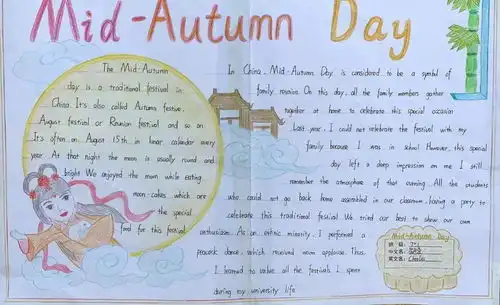 Mid-Autumn Day
The Mid-Autumn
day is a traditional festival in
China. It's also called Autumn festive,
August festival or Reunion festival and so on.
It's often on August 15th in lunar calendar every
year. At that night the moon is usually round and
bright. We enjoyed the moon while eating
moon-cakes which are
the special
food for this festival.
In China, Mid-Autumn Day is considered to be a symbol of
family reunion. On this day, all the family members gather
together at home to celebrate this special occasion
Last year, I could not celebrate the festival with my
family because I was in school. However, this special
day left a deep impression on me. I still
remember the atmosphere of that evening. All the students
who could not go back home assembled in our classroom, having a party to
celebrate this traditional festival. We tried our best to show our own
enthusiasm. As an ethnic minority, I performed a
peacock dance, which received warm applause. Thus,
I learned to value all the festivals I spent
during my university life
Mid-Autumn Day
班级:
中文名:
英文名: Charles